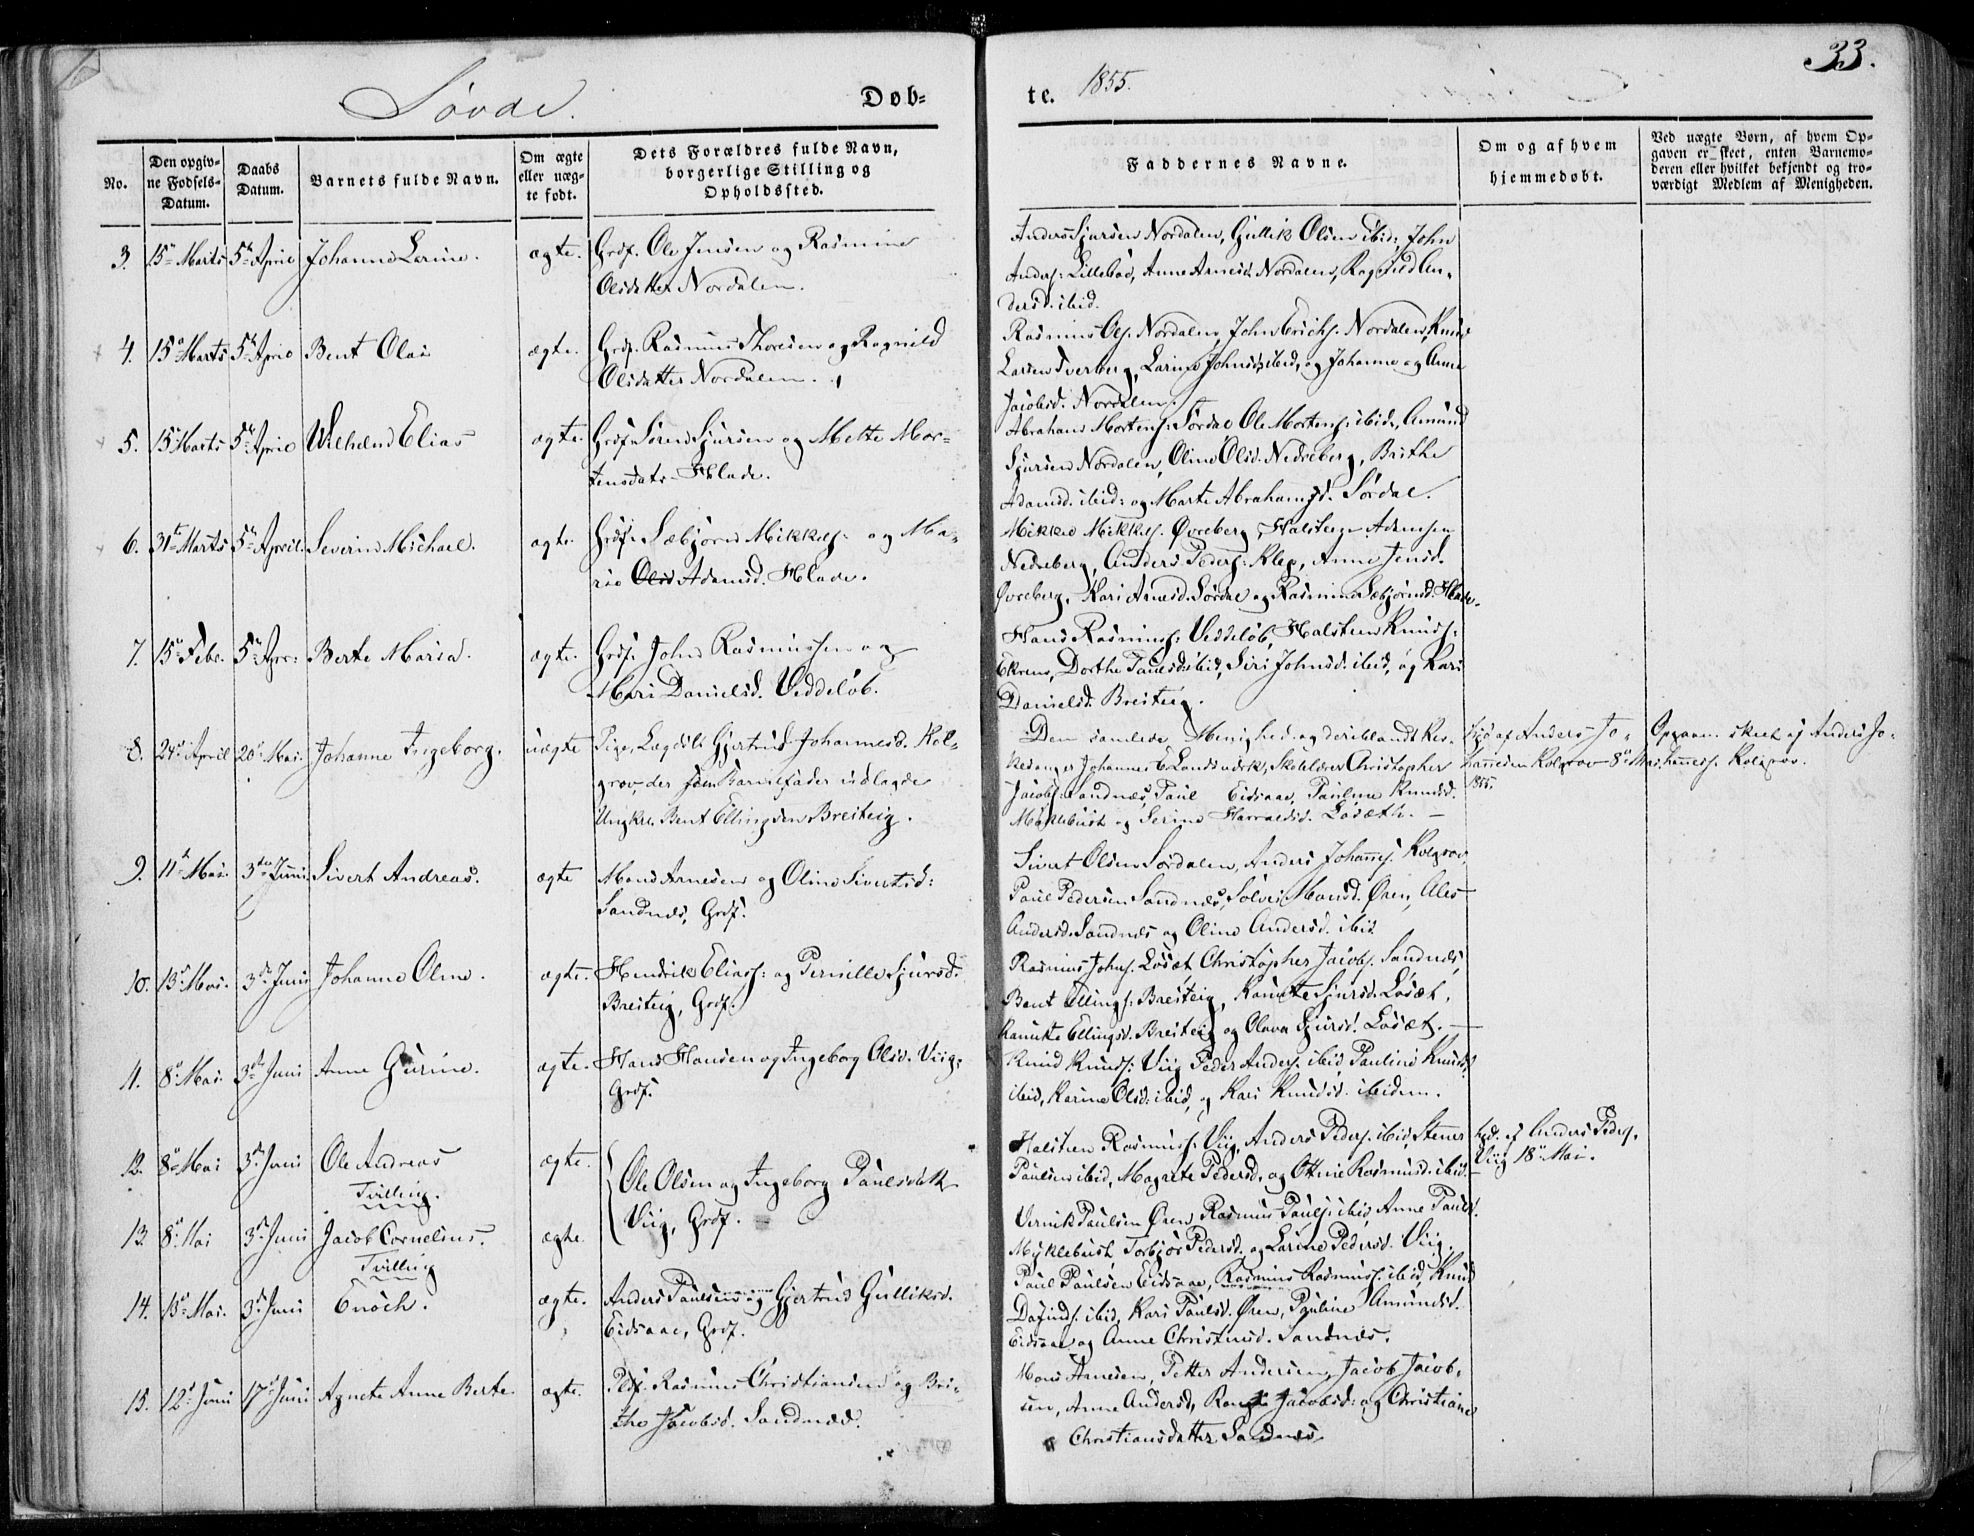 33.
Søvde.
Døb-
te. 1855.
No.
Den opgiv-
ne Fødsels-
Datum.
Daabs
Datum.
Barnets fulde Navn.
Om ægte
eller uæg-
te født.
Dets Forældres fulde Navn,
borgerlige Stilling og
Opholdssted.
Faddernes Navne.
Om og af hvem
hjemmedøbt.
Ved uægte Børn, af hvem Op-
gaven er skeet, enten Barnemo-
deren eller hvilket bekjendt og tro-
værdigt Medlem af Menigheden.
3. 15de Marts 5te April Johanne Lorine. ægte. Grdf. Ole Jensen og Rasmine
Olsdatter Nordalen.
Anders Sjursen Nordalen, Gullik Olsen ibid:, John
Anders: Anne Arnesd. Nordalen, Ragnild An-
dersd. ibid.
4. 15de Marts 5te April Bent Olai ægte. Grdf. Rasmus Thoresen og Ragnild
Olsdatter Nordalen.
Rasmus Ols. Nordalen, John Erichs. Nordalen, Knud
Larsen Tverberg, Larine Johnsd. ibid, og Johanne og Anne
Jacobsd. Nordalen.
5. 15 Marts 5te April Elias ægte. Grdf. Søren Sjursen og Mette Mor-
tensdatr. Hlade.
Abraham Mortens: Sørdal Ole Mortens: ibid., Amund
Sjursen Nordalen, Oline Olsd. Nedreberg, Brithe
Adamsd. ibid: og Marte Abrahamsd. Sørdal.
6. 31te Marts 5te April. Severin Michael. ægte. Grdf. Sæbjørn Mikkels. og Ma-
rie Olsd Adamsd. Hlade.
Mikkel Mikkels. Øvreberg, Halsten
Nedreberg, Anders Peders: Klep, Anne Jensd.
Øvreberg, Kari Arnesd. Sørdal og Rasmine Sæbjørnsd. Hlade.
7. 15de Febr. 5te Apr: Berte Maria. ægte. Grdf. John Rasmussen og
Mari Danielsd. Veddeløb.
Hans Rasmuss: Veddeløb, Halsteen Knuds:
Ekrem, Dorthe Paulsd. ibid, Siri Johnsd. ibid, og Kari
Danielsd. Breiteig.
8. 24de April 20de Mai. Johanne Ingeborg. uægte Pige, Gjertrud Johannesd. Kol-
grov, der som Barnefader udlagde
Ungkrl. Bent Ellingsen Breiteig.
Den samlede Menighed og deriblandt Kir-
kesanger Johannes E Landsverk, Skolelærer Christopher
Jacobs: Sandnæs, Paul Eidsaae, Pauline Knudsd.
Myklebust og Serine Haraldsd. Løsæth.
Hjd. af Anders Jo-
hannesen Kolgrov 8de Mai
1855.
Opgaven skeet af Anders Jo-
hanness. Kolgrov.
9. 11te Mai. 3die Juni. Sivert Andreas. ægte Mons Arnesen og Oline Sivertsd:
Sandnæs, Grdf.
Sivert Olsen Sørdalen, Anders Johanns. Kolgrov,
Paul Pedersen Sandnæs, Sølvi Monsd. Øren, Ales
Andersd. Sandnæs og Oline Andersd. ibid
10. 13de Mai. 3die Juni Johanne Oline. ægte. Hendrik Eliass: og Pernille Sjursd.
Breiteig, Grdf.
Rasmus Johs. Løsæt Christopher Jacobs. Sandnæs,
Bent Ellings: Breiteig, Ranute Sjursd. Løsæt,
Ranute Ellingsd. Breiteig og Olava Sjursd. Løsæt.
11. 8de Mai. 3die Juni Anne Gurine. ægte. Hans Hansen og Ingeborg Olsd. Viig,
Grdf.
Knud Knuds: Viig Peder Anders. ibid, Pauline Knudsd.
ibid, Karine Olsd: ibid, og Kari Knudsd. ibidem.
12. 8de Mai 3die Juni Ole Andreas
Tvilling.
ægte. Ole Olsen og Ingeborg Paulsdatr
Viig, Grdf.
Halsten Rasmuss. Viig, Anders Peders. ibid, Stener
Paulsen ibid, Magrete Pedersd, og Ottine Rasmusd. ibid.
Hjd. af Anders Peders.
Viig 18de Mai.
13. 8de Mai 3die Juni Jacob Cornelius.
Tvilling
ægte
Paulsen Øren, Rasmus Pauls: ibid, Anne Paulsd.
Myklebust, Torbjør Pedersd. og Larine Pedersd. Viig.
14. 15de Mai. 3die Juni Enoch. ægte. Anders Paulsen og Gjertrud Gulliksd.
Eidsaae, Grdf.
Paul Paulsen Eidsaae, Rasmus Rasmuss. ibid, Knud
ibid, Kari Paulsd. Øren, Pauline Amundsd.
Eidsaae og Anne Christensd. Sandnæs.
15. 12te Juni 17de Juni Agnete Anne Berte ægte. Pldf. Rasmus Christiansen og Bri-
the Jacobsd. Sandnæs.
Mons Arnesen, Petter Andersen, Jacob Jacob-
sen, Anne Andersd, Jacobsd: og Christiane
Christiansdatter Sandnæs